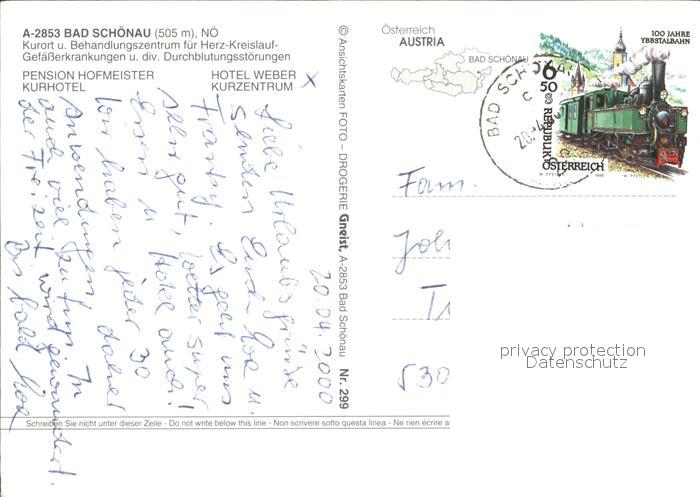 A-2853 BAD SCHÖNAU (505 m), NÖ
Kurort u. Behandlungszentrum für Herz-Kreislauf-
Gefäßerkrankungen u. div. Durchblutungsstörungen
PENSION HOFMEISTER
KURHOTEL
HOTEL WEBER
KURZENTRUM
x
20.04.2000
Liebe Urlaubsgrüße
senden Euch u.
Franky. Es geht uns
sehr gut, Wetter super
Essen u. Hotel auch!
Wir haben jeder 30
Anwendungen, daher
auch viel zu tun. In
der Freizeit wird gewandert.
Bis bald
© Ansichtskarten FOTO – DROGERIE Gneist, A-2853 Bad Schönau Nr. 299
Österreich
AUSTRIA
BAD SCHÖNAU
BAD SCHÖNAU
c
20.-4.
100 JAHRE
YBBSTALBAHN
6 50
S
REPUBLIK
ÖSTERREICH
Fam.
530
privacy protection
Datenschutz
Schreiben Sie nicht unter dieser Zeile - Do not write below this line - Non scrivere sotto questa linea - Ne rien écrire a